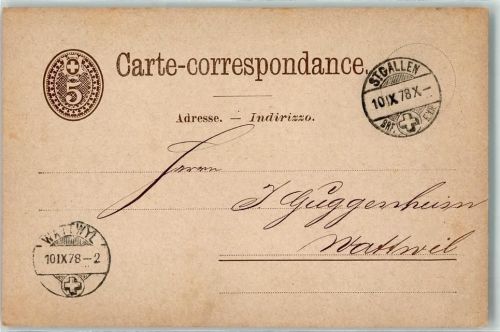 5
Carte-correspondance.
ST.GALLEN
10 IX 78 X–
BRF. EXP.
Adresse. — Indirizzo.
Herrn
J Guggenheim
Wattwil
WATTWYL
10 IX 78 – 2